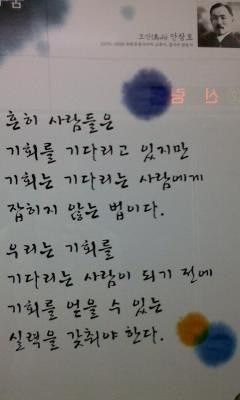 흔히 사람들은
기회를 기다리고 있지만
기회는 기다리는 사람에게
잡히지 않는 법이다.
우리는 기회를
기다리는 사람이 되기 전에
기회를 얻을 수 있는
실력을 갖춰야 한다.